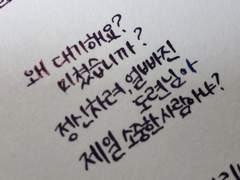 왜 대기해요?
미쳤습니까?
정신차려, 얼빠진
도련님아
제일 소중한 사람이냐?